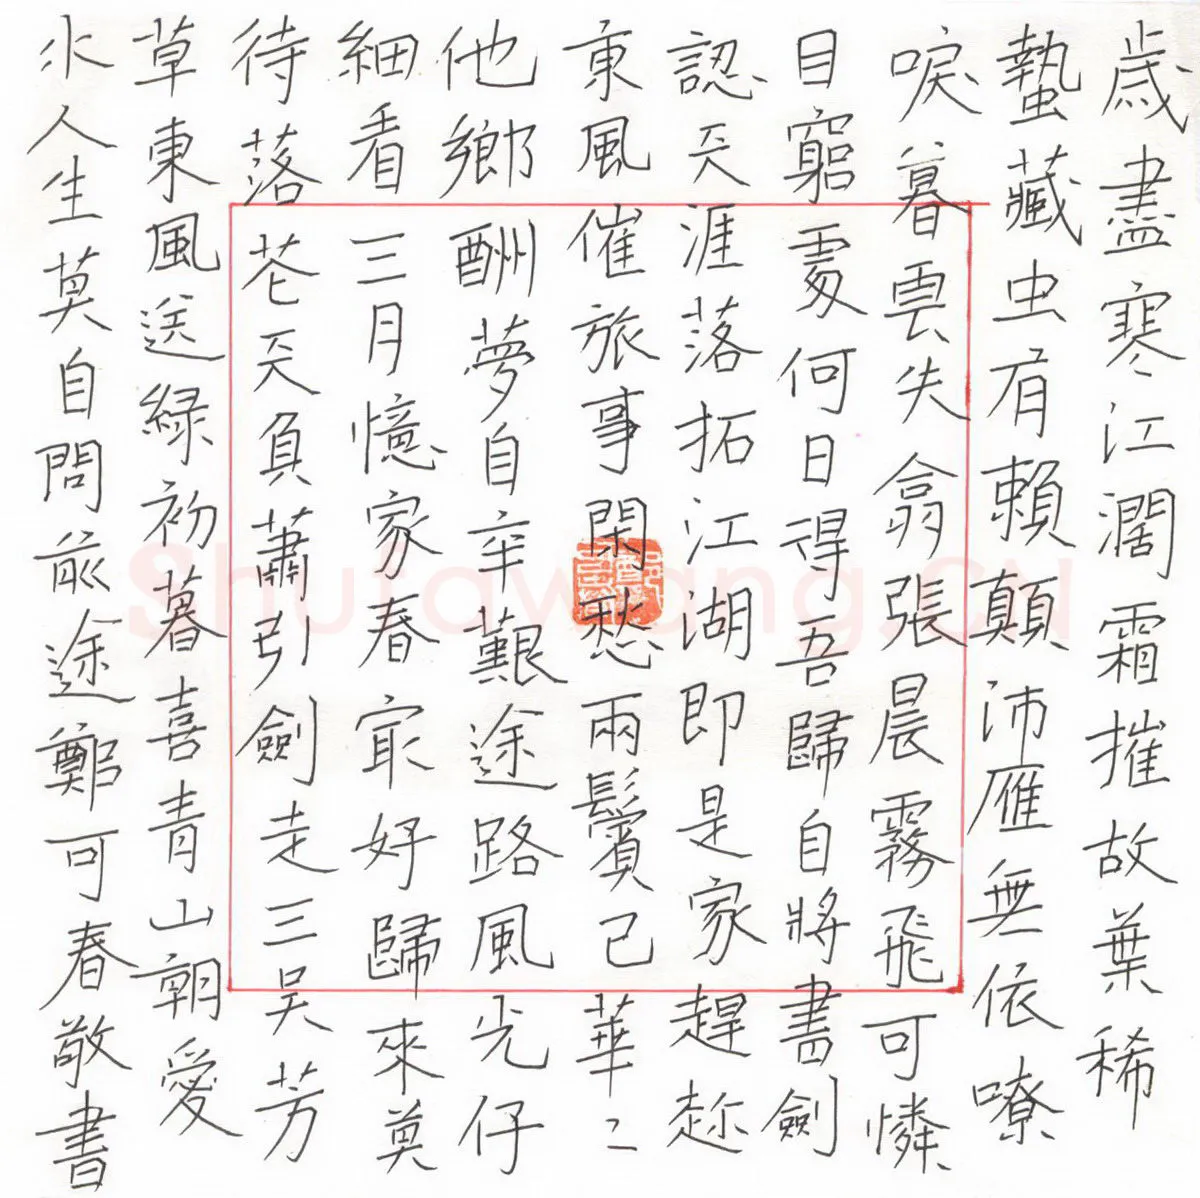 歲盡寒江濶霜摧故葉稀
蟄藏虫有賴顛沛雁無依嘹
唳暮雲失翕張晨霧飛可憐
目窮處何日得吾歸自將書劍
認天涯落拓江湖即是家趕趂
東風催旅事閑愁兩鬢已華〻
他鄉酬夢自辛艱途路風光仔
細看三月憶家春冣好歸來莫
待落花天負蕭引劍走三吴芳
草東風送緑初暮喜青山朝愛
水人生莫自問前途鄭可春敬書
Shufawang.CN